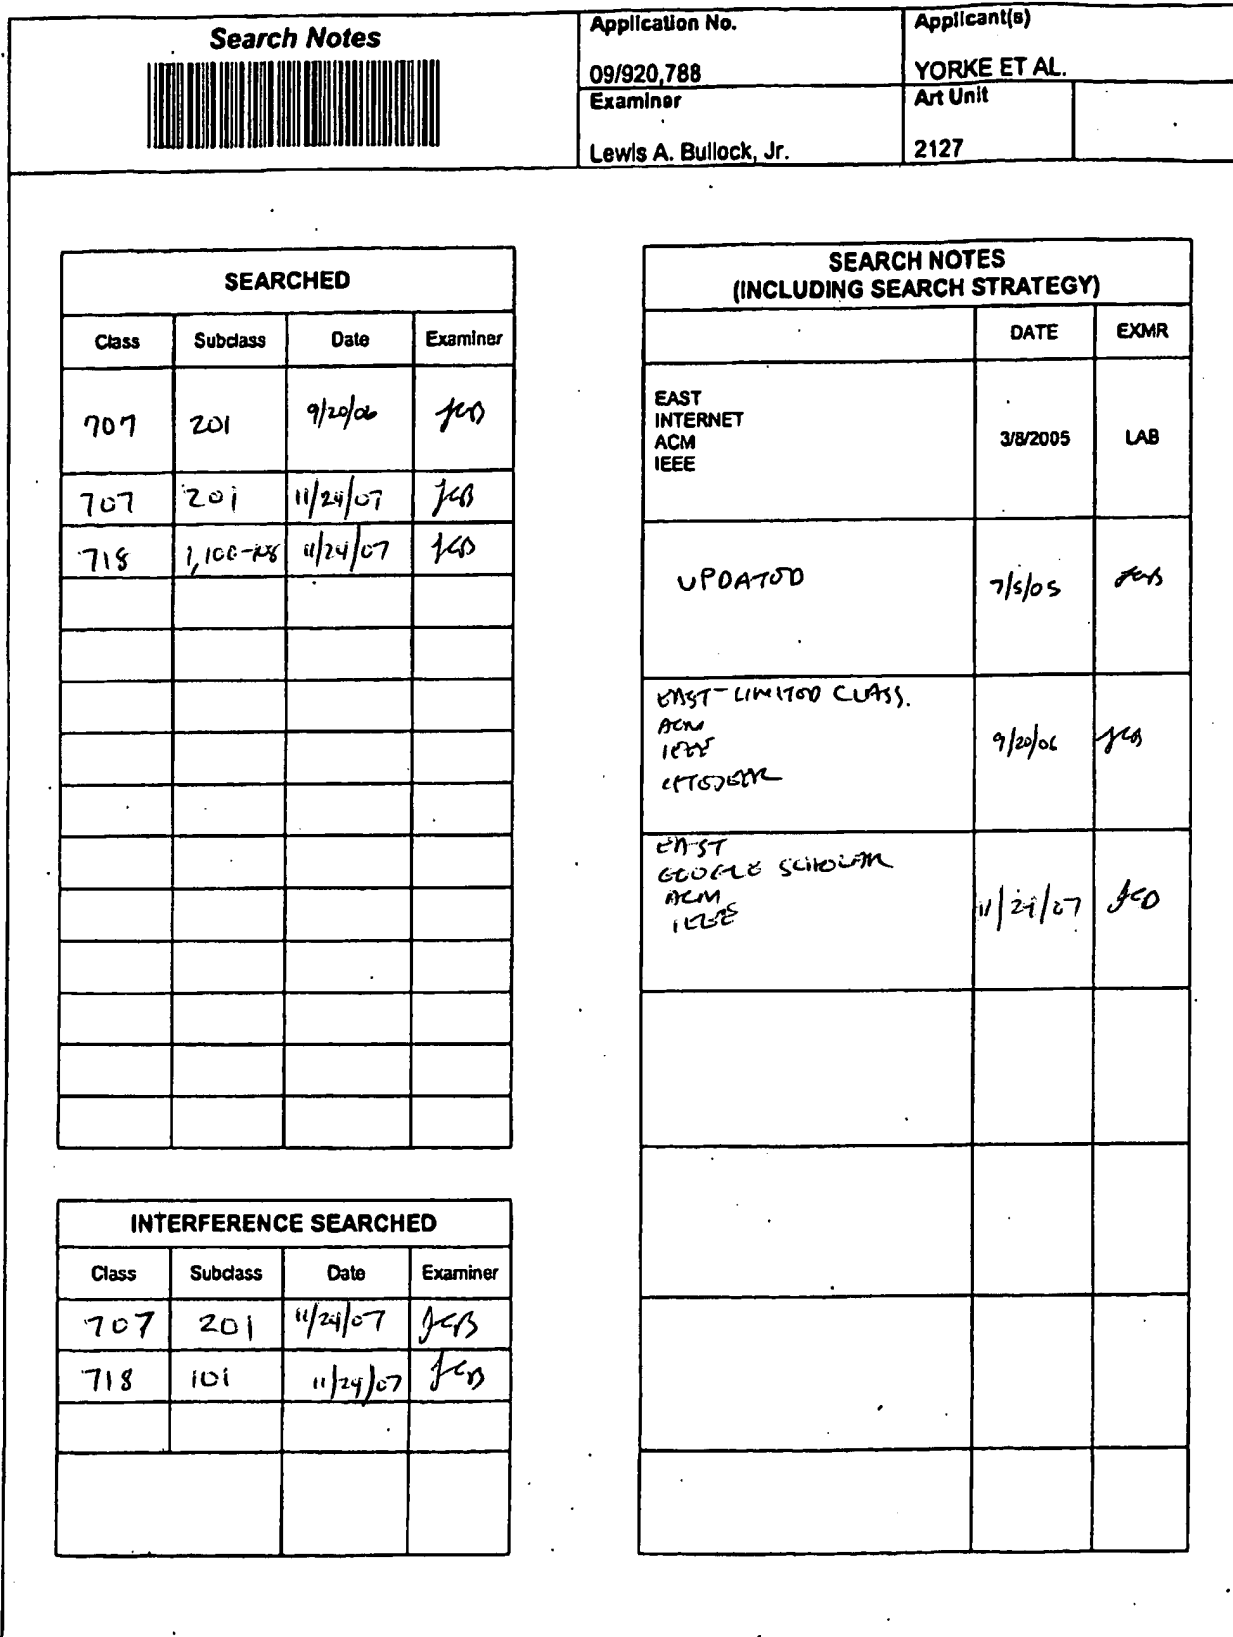 Search Notes
Application No.
09/920,788
Applicant(s)
YORKE ET AL.
Examiner
Lewis A. Bullock, Jr.
Art Unit
2127
SEARCHED
Class Subclass Date Examiner
707 201 9/20/06
707 201 11/24/07
718 1,100-108 11/24/07
INTERFERENCE SEARCHED
Class Subclass Date Examiner
707 201 11/24/07
718 101 11/24/07
SEARCH NOTES
(INCLUDING SEARCH STRATEGY)
DATE EXMR
EAST
INTERNET
ACM
IEEE
3/8/2005 LAB
UPDATED 7/5/05
EAST-LIMITED CLASS.
ACM
IEEE
9/20/06
EAST
GOOGLE SCHOLAR
ACM
IEEE
11/24/07